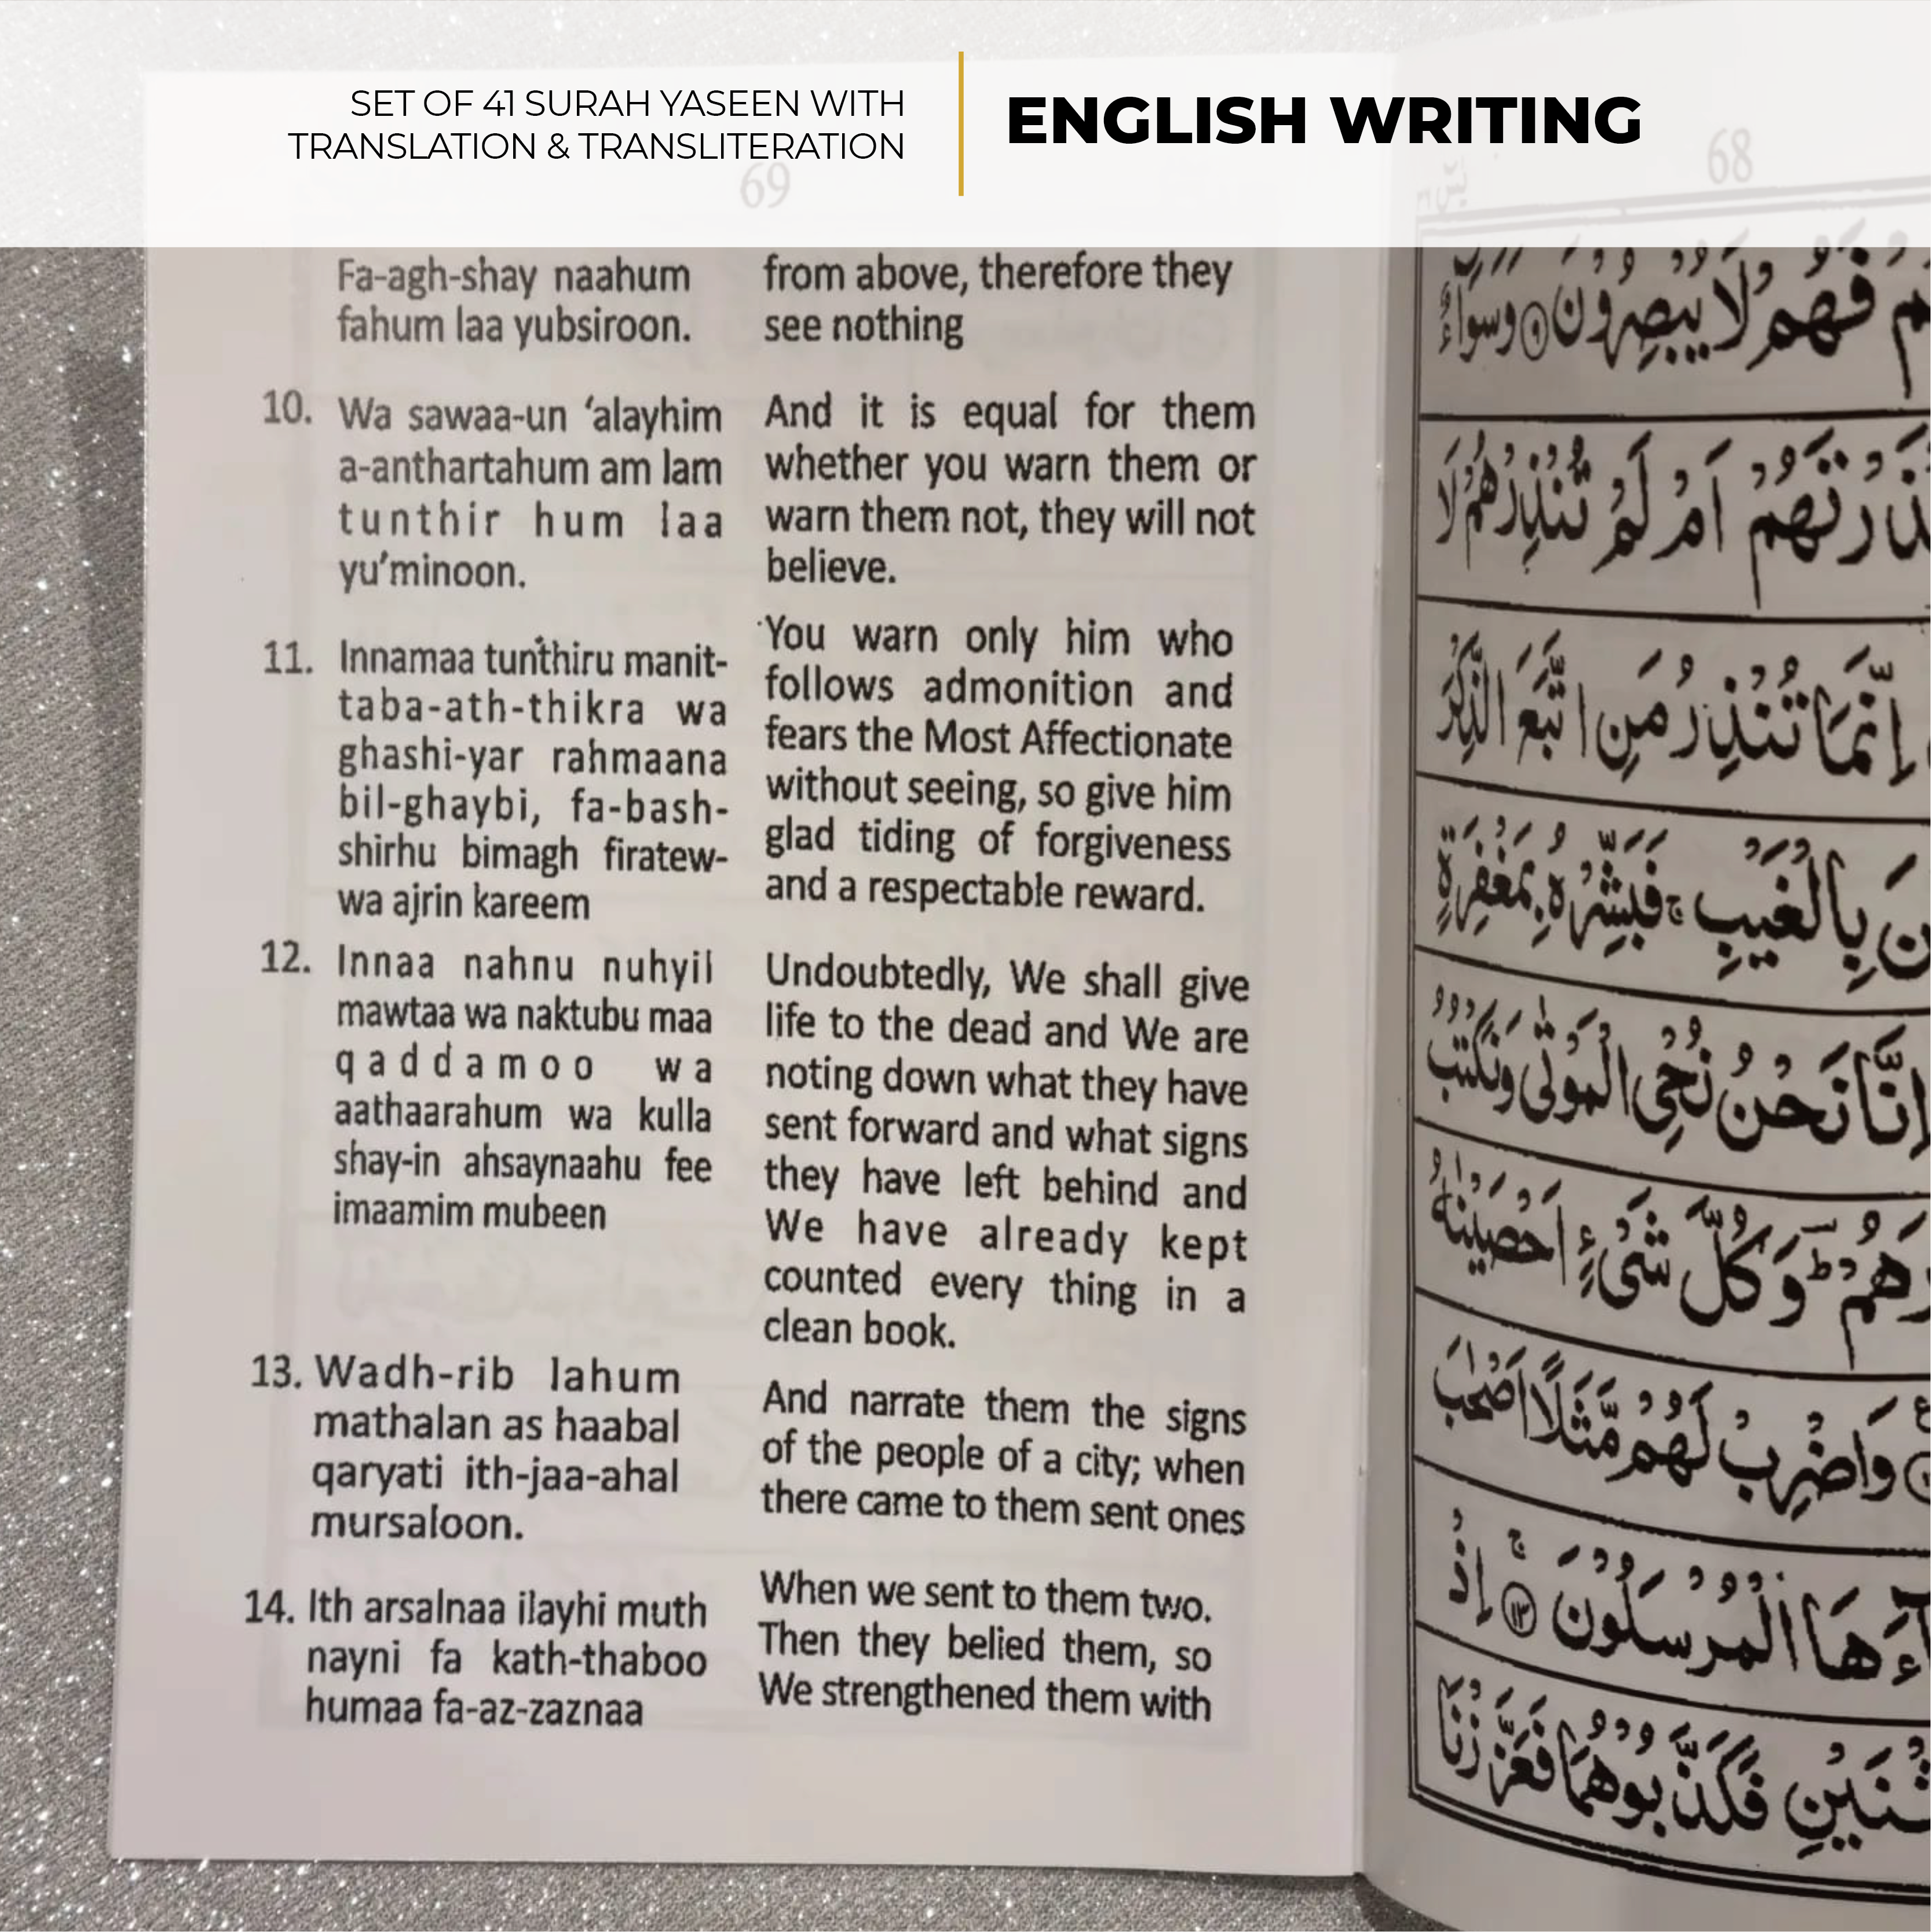 SET OF 41 SURAH YASEEN WITH
TRANSLATION & TRANSLITERATION
ENGLISH WRITING
69
68
Fa-agh-shay naahum
fahum laa yubsiroon.
from above, therefore they
see nothing
10. Wa sawaa-un ‘alayhim
a-anthartahum am lam
tunthir hum laa
yu’minoon.
And it is equal for them
whether you warn them or
warn them not, they will not
believe.
11. Innamaa tunthiru manit-
taba-ath-thikra wa
ghashi-yar rahmaana
bil-ghaybi, fa-bash-
shirhu bimagh firatew-
wa ajrin kareem
You warn only him who
follows admonition and
fears the Most Affectionate
without seeing, so give him
glad tiding of forgiveness
and a respectable reward.
12. Innaa nahnu nuhyil
mawtaa wa naktubu maa
qaddamoo wa
aathaarahum wa kulla
shay-in ahsaynaahu fee
imaamim mubeen
Undoubtedly, We shall give
life to the dead and We are
noting down what they have
sent forward and what signs
they have left behind and
We have already kept
counted every thing in a
clean book.
13. Wadh-rib lahum
mathalan as haabal
qaryati ith-jaa-ahal
mursaloon.
And narrate them the signs
of the people of a city; when
there came to them sent ones
14. Ith arsalnaa ilayhi muth
nayni fa kath-thaboo
humaa fa-az-zaznaa
When we sent to them two.
Then they belied them, so
We strengthened them with
فَهُمْ لَا يُبْصِرُوْنَ ۹ وَسَوَآءٌ
اَمْ لَمْ تُنْذِرْهُمْ لَا
اِنَّمَا تُنْذِرُ مَنِ اتَّبَعَ الذِّكْرَ
بِالْغَيْبِ ج فَبَشِّرْهُ بِمَغْفِرَةٍ
اِنَّا نَحْنُ نُحْيِ الْمَوْتٰى وَنَكْتُبُ
وَكُلَّ شَيْءٍ اَحْصَيْنٰهُ
وَاضْرِبْ لَهُمْ مَّثَلًا اَصْحٰبَ
الْمُرْسَلُوْنَ ۱۳ ج اِذْ
فَكَذَّبُوْهُمَا فَعَزَّزْنَا